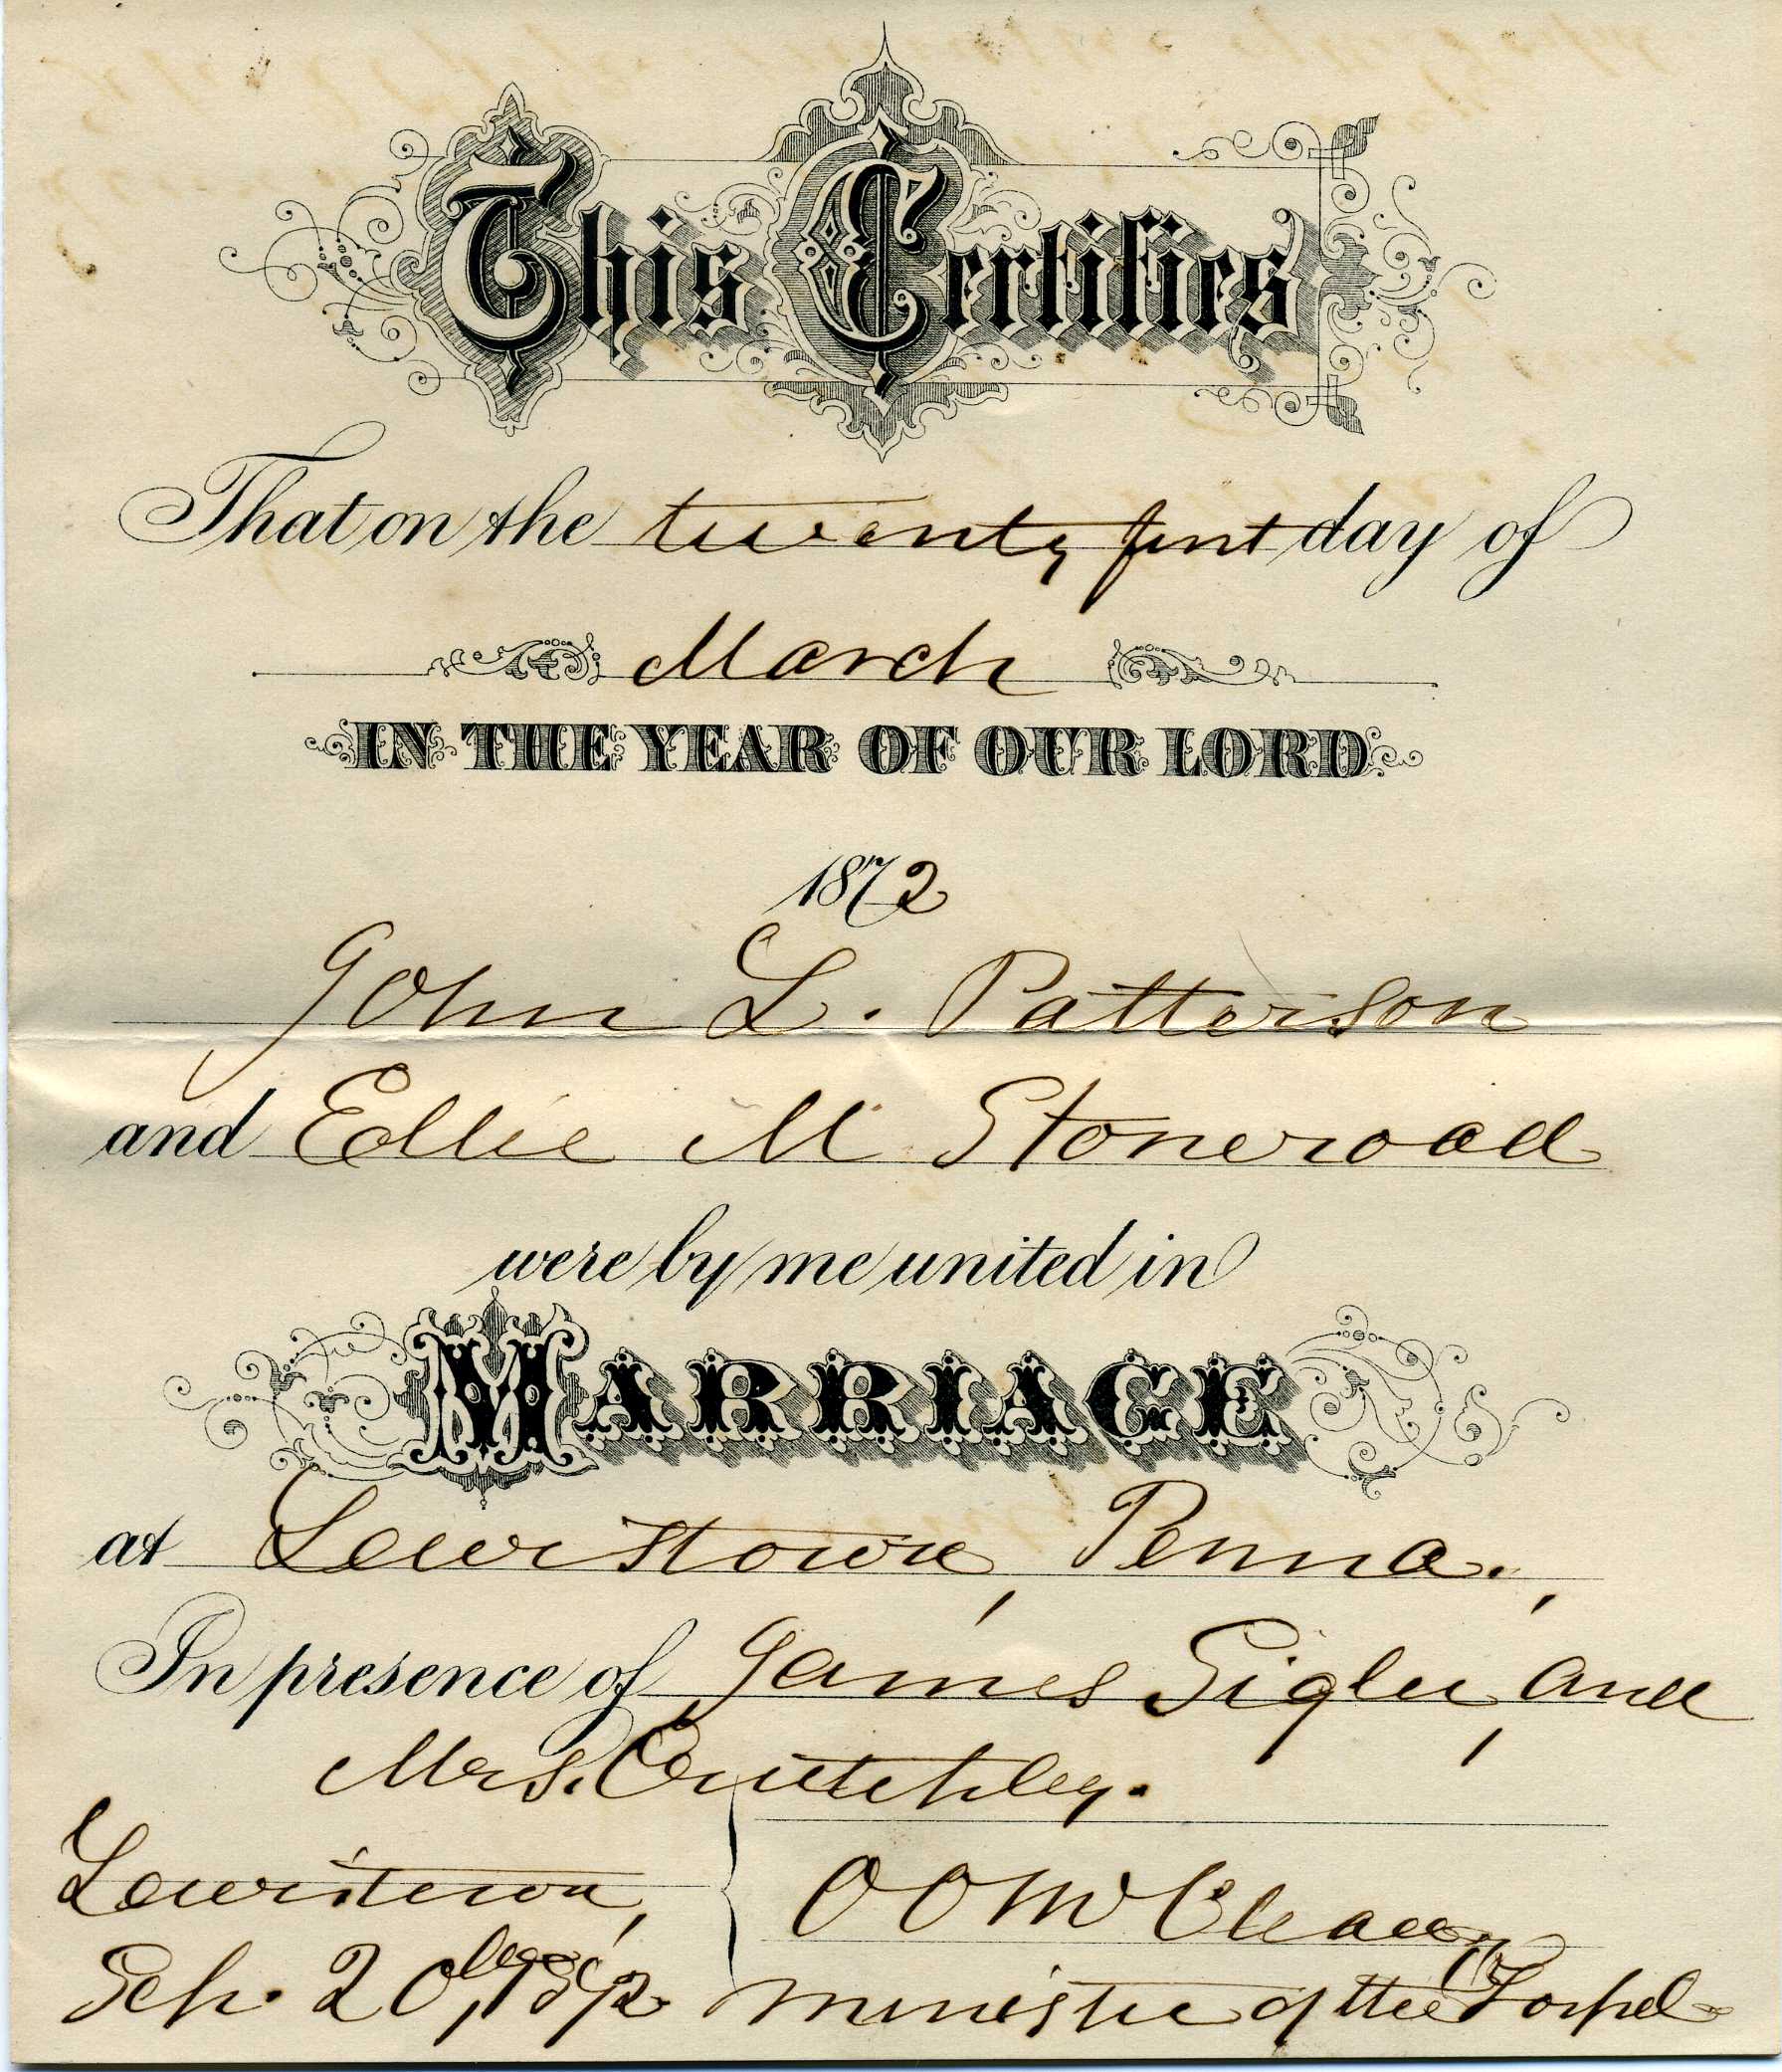 This Certifies
That on the twenty first day of
March
IN THE YEAR OF OUR LORD
1872
John L. Patterson
and Ellie M Stoneroad
were by me united in
MARRIAGE
at Lewistown, Penna.,
In presence of James Sigler, and
Mrs. Crutchley.
Lewistown,
Sep. 20th, 1892
O O McClean,
Minister of the Gospel